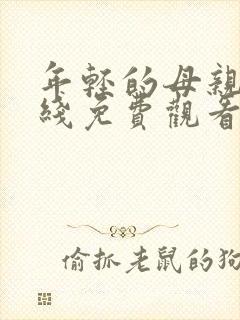 年輕的母親
綫免費觀看
偷抓老鼠的狗